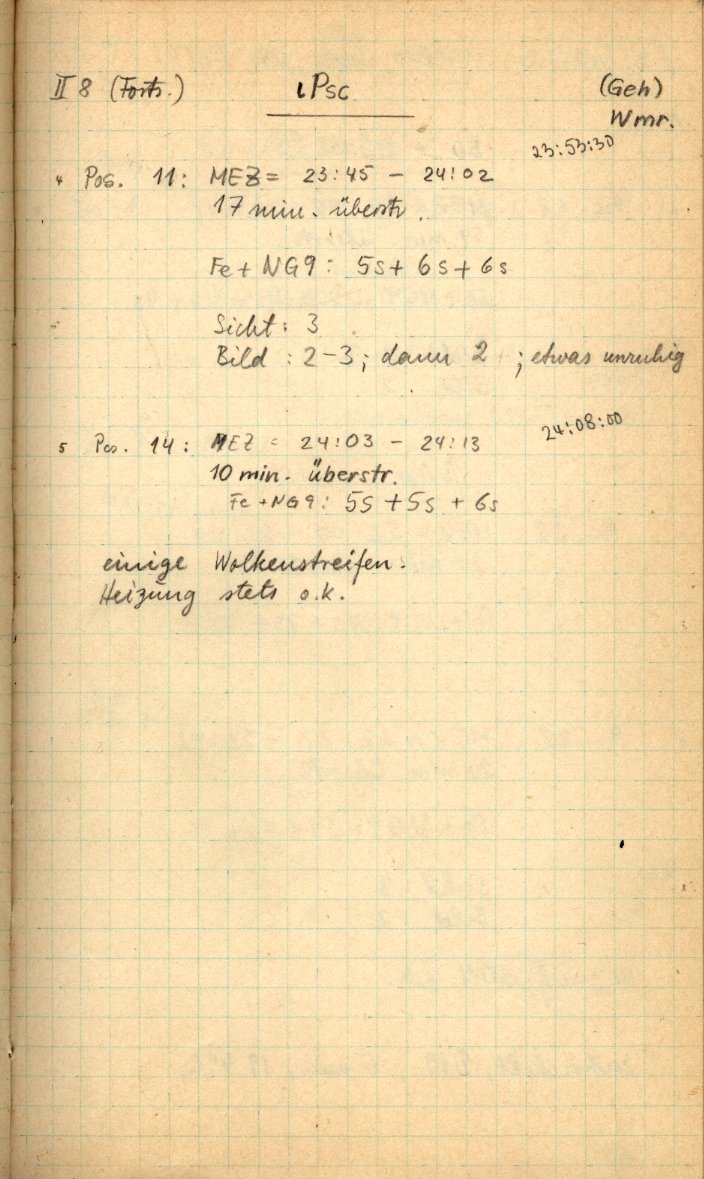 II 8 (Forts.) ι Psc (Geh)
Wmr.
23:53:30
4 Pos. 11: MEZ = 23:45 - 24:02
17 min. überstr.
Fe + NG9: 5s + 6s + 6s
Sicht: 3
Bild : 2-3; dann 2 ; etwas unruhig
24:08:00
5 Pos. 14: MEZ = 24:03 - 24:13
10 min. überstr.
Fe + NG9: 5s + 5s + 6s
einige Wolkenstreifen.
Heizung stets o.k.